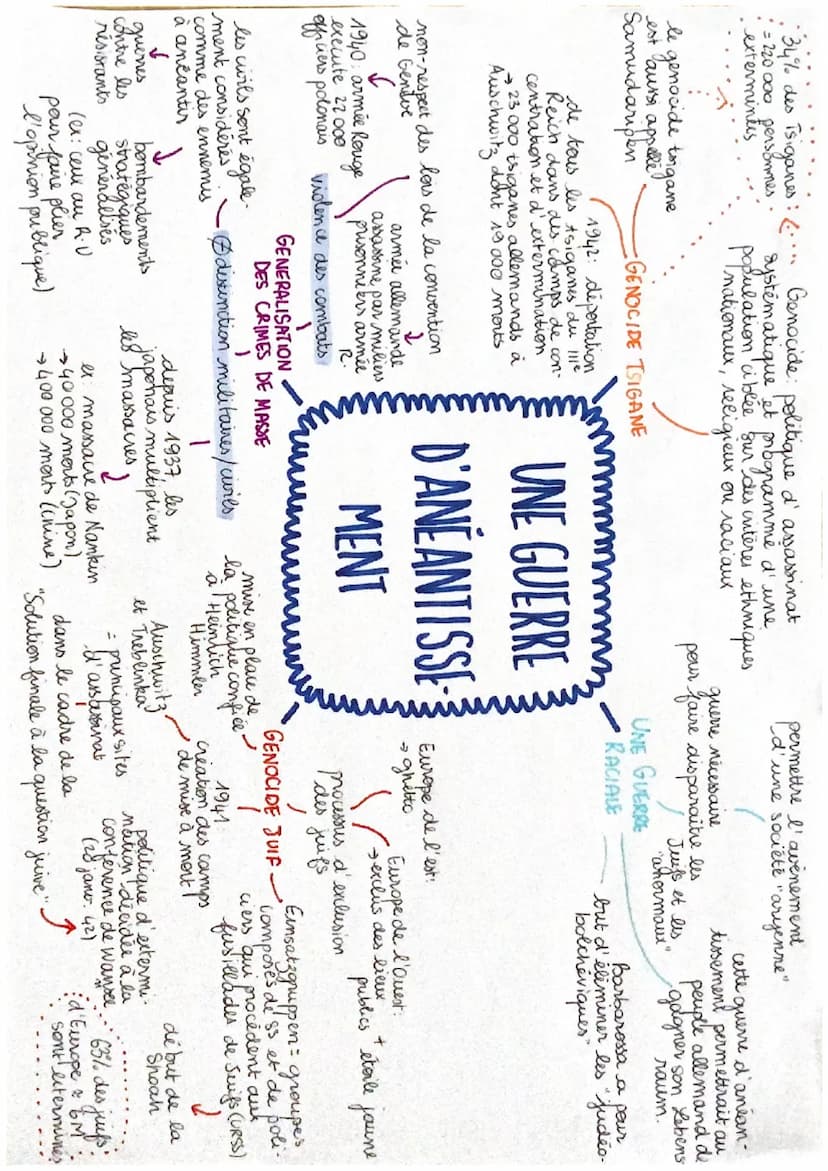 UNE GUERRE
D'ANÉANTISSE-
MENT
GÉNOCIDE TSIGANE
Génocide: politique d'assassinat
systématique et programmé d'une
population ciblée sur des critères ethniques
nationaux, religieux ou raciaux
34% des Tsiganes
= 220 000 personnes
exterminées
le génocide tsigane
est aussi appelé
Samudaripen
1942: déportation
de tous les tsiganes du IIIe
Reich dans des camps de con-
centration et d'extermination
→ 23 000 tsiganes allemands à
Auschwitz dont 19 000 morts
UNE GUERRE
RACIALE
permettre l'avènement
d'une société "aryenne"
guerre nécessaire
pour faire disparaître les
Juifs et les
"anormaux"
cette guerre d'anéan-
tissement permettrait au
peuple allemand de
gagner son Lebens
raum
Barbarossa a pour
but d'éliminer les "judéo-
bolchéviques"
GÉNÉRALISATION
DES CRIMES DE MASSE
violence des combats
non-respect des lois de la convention
de Genève
1940: armée Rouge
exécute 27 000
officiers polonais
armée allemande
assassine par milliers
prisonniers armée
R.
≠ distinction militaires/civils
les civils sont égale-
ment considérés
comme des ennemis
à anéantir
guerres
contre les
résistants
bombardements
stratégiques
généralisés
(ex: ceux au R.U
pour faire plier
l'opinion publique)
depuis 1937: les
japonais multiplient
les massacres
ex: massacre de Nankin
→ 40 000 morts (Japon)
→ 400 000 morts (Chine)
GÉNOCIDE JUIF
processus d'exclusion
des juifs
Europe de l'est:
→ ghetto
Europe de l'Ouest:
→ exclus des lieux
publics + étoile jaune
Einsatzgruppen = groupes
composés de SS et de poli-
ciers qui procèdent aux
fusillades de Juifs (URSS)
début de la
Shoah
mise en place de
la politique confiée
à Heinrich
Himmler
1941:
création des camps
de mise à mort
Auschwitz
et Treblinka
= principaux sites
d'assassinat
dans le cadre de la
"Solution finale à la question juive"
politique d'extermi-
nation décidée à la
conférence de Wansee
(20 janv. 42)
63% des juifs
d'Europe ≈ 6M
sont exterminés